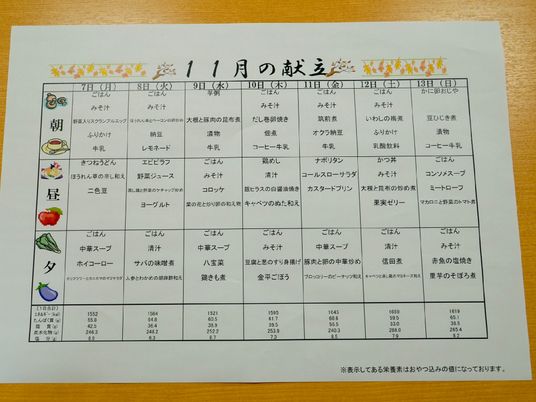 11月の献立
7日（月） 8日（火） 9日（水） 10日（木） 11日（金） 12日（土） 13日（日）
朝
ごはん ごはん 芋粥 ごはん ごはん ごはん かに卵おじや
みそ汁 みそ汁 みそ汁 みそ汁 みそ汁
野菜入りスクランブルエッグ ほうれん草とベーコンの卵炒め 大根と豚肉の昆布煮 だし巻卵焼き 筑前煮 いわしの梅煮 豆ひじき煮
ふりかけ 納豆 漬物 佃煮 オクラ納豆 ふりかけ 漬物
牛乳 レモネード 牛乳 コーヒー牛乳 牛乳 乳酸飲料 コーヒー牛乳
昼
きつねうどん エビピラフ ごはん 鶏めし ナポリタン かつ丼 ごはん
ほうれん草の浸し和え 野菜ジュース みそ汁 清汁 コールスローサラダ みそ汁 コンソメスープ
二色豆 コロッケ 豚ヒラスの白醤油焼き カスタードプリン 大根と昆布の炒め煮 ミートローフ
ヨーグルト 菜の花と炒り卵の和え物 キャベツのぬた和え 果実ゼリー マカロニと野菜のトマト煮
夕
ごはん ごはん ごはん ごはん ごはん ごはん ごはん
中華スープ 清汁 中華スープ みそ汁 中華スープ 清汁 みそ汁
ホイコーロー サバの味噌煮 八宝菜 豆腐と葱のすり身揚げ 豚肉と卵の中華炒め 信田煮 赤魚の塩焼き
人参とわかめの胡麻酢和え 鶏きも煮 金平ごぼう ブロッコリーのピーナッツ和え 里芋のそぼろ煮
1552 1564 1521 1595 1645 1659 1619
たんぱく質（g）
脂 質（g）
炭水化物（g）
塩 分（g）
※表示してある栄養素はおやつ込みの値になっております。